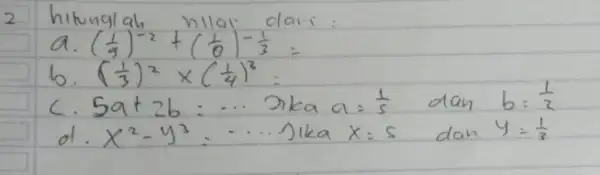 2 hitunglah nilai dari :
a. (1/9)^-2 + (1/8)^-1/3 =
b. (1/3)^2 × (1/4)^3 =
c. 5a + 2b = ... Jika a = 1/5 dan b = 1/2
d. x^2 - y^3 = .... Jika x = 5 dan y = 1/3